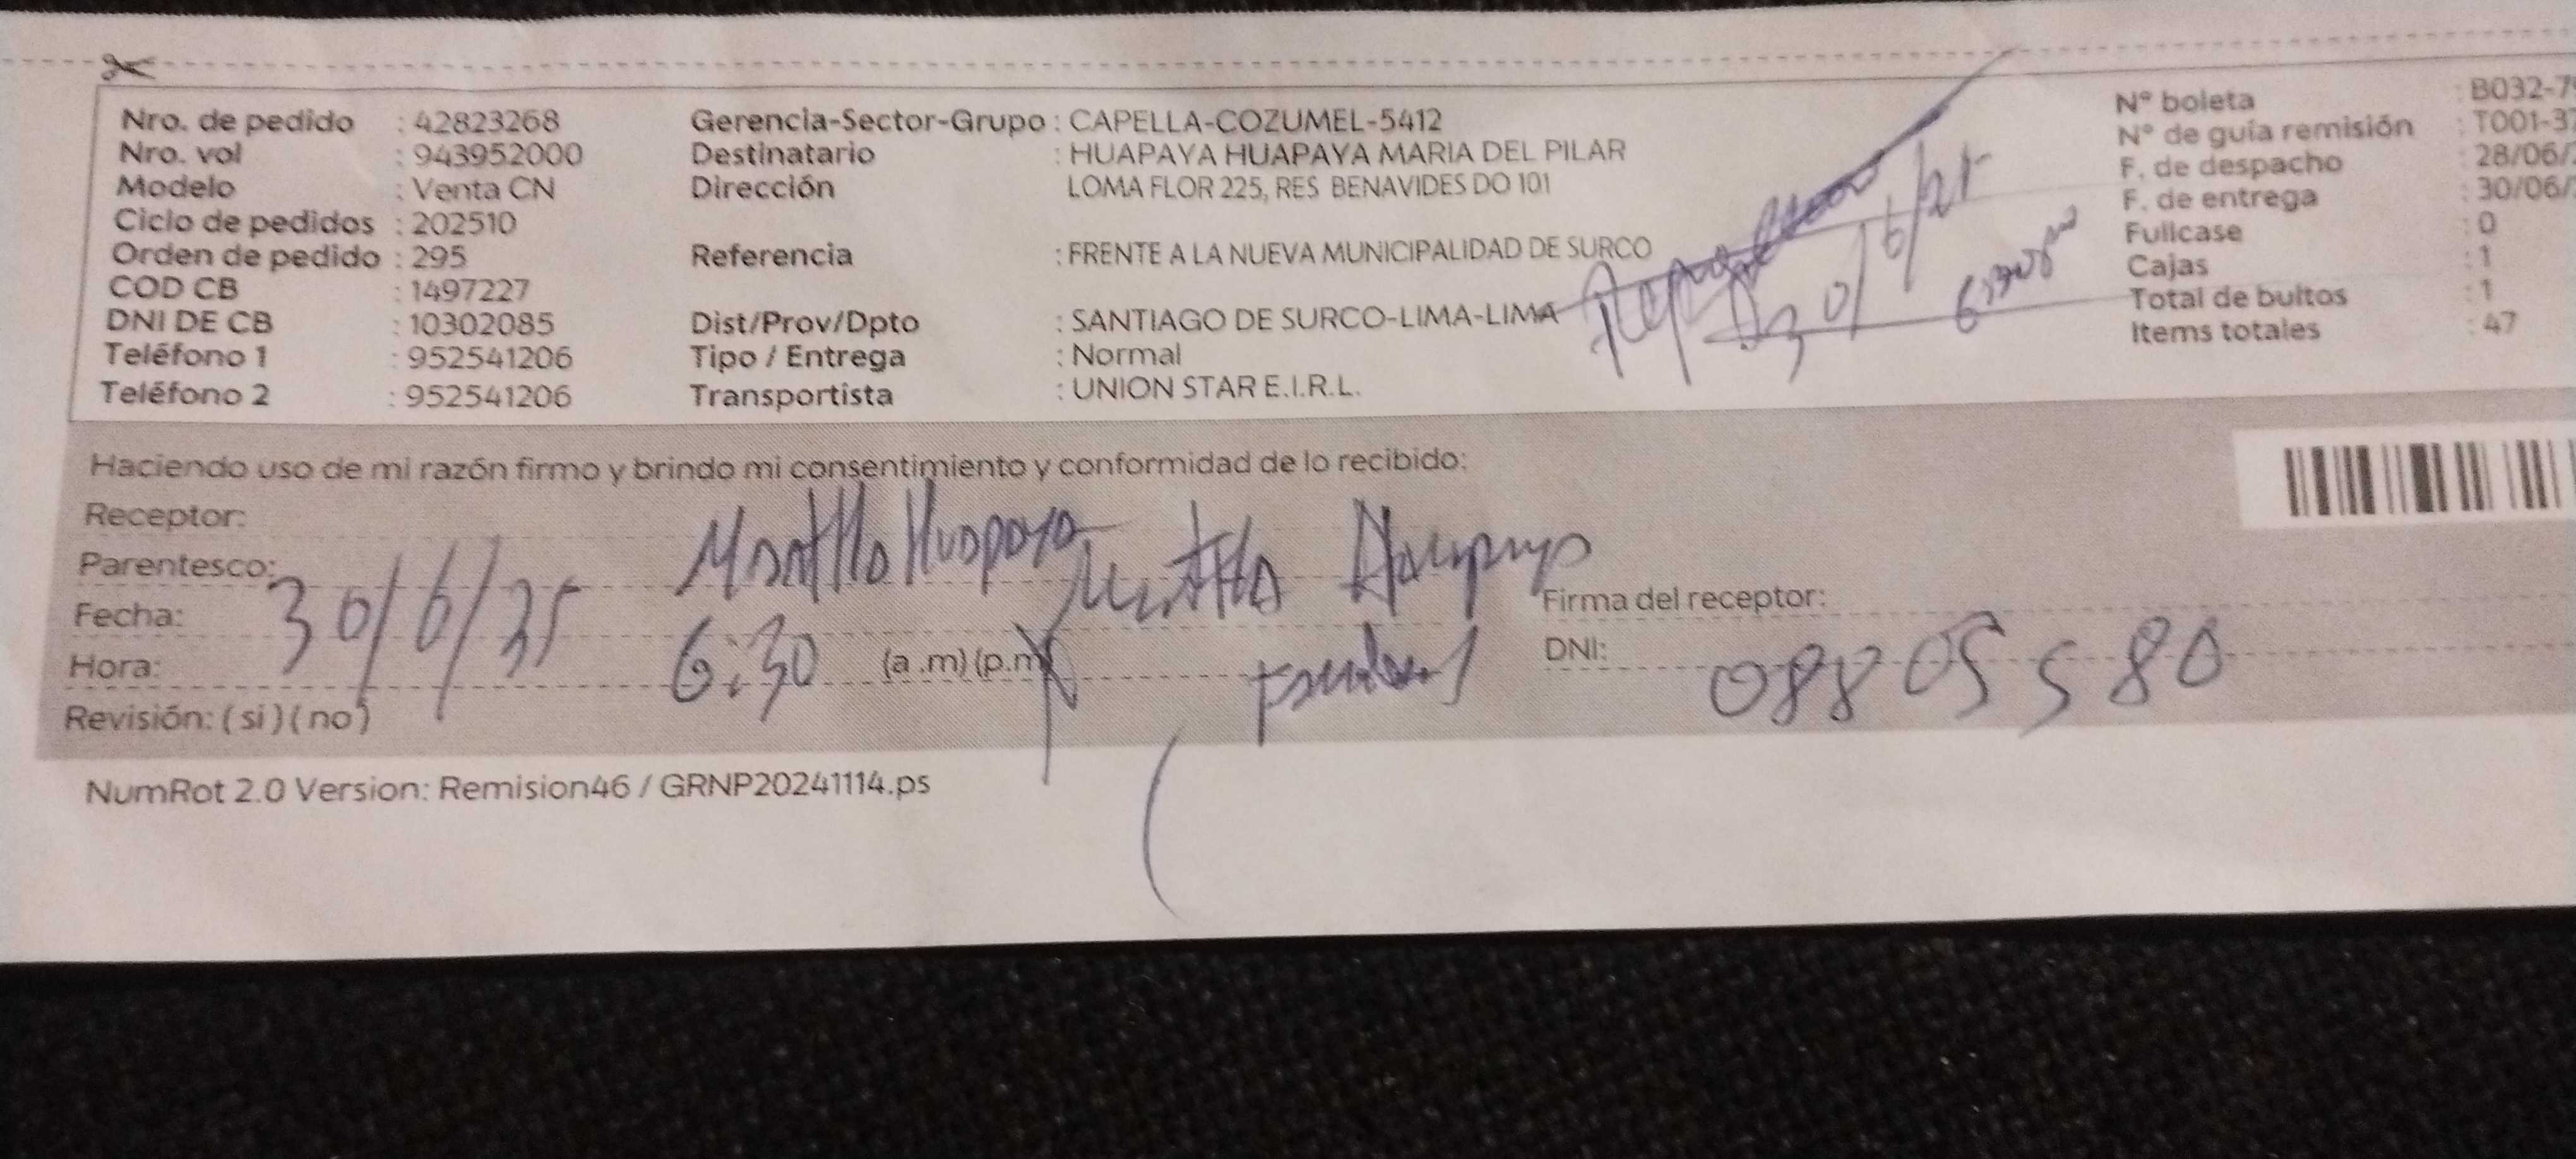 Nro. de pedido : 42823268
Nro. vol : 943952000
Modelo : Venta CN
Ciclo de pedidos : 202510
Orden de pedido : 295
COD CB : 1497227
DNI DE CB : 10302085
Teléfono 1 : 952541206
Teléfono 2 : 952541206
Gerencia-Sector-Grupo : CAPELLA-COZUMEL-5412
Destinatario : HUAPAYA HUAPAYA MARIA DEL PILAR
Dirección LOMA FLOR 225, RES BENAVIDES DO 101
Referencia : FRENTE A LA NUEVA MUNICIPALIDAD DE SURCO
Dist/Prov/Dpto : SANTIAGO DE SURCO-LIMA-LIMA
Tipo / Entrega : Normal
Transportista : UNION STAR E.I.R.L.
30/6/25
6:30 pm
N° boleta : B032-7
N° de guía remisión : T001-37
F. de despacho : 28/06/
F. de entrega : 30/06/
Fullcase : 0
Cajas : 1
Total de bultos : 1
Items totales : 47
Haciendo uso de mi razón firmo y brindo mi consentimiento y conformidad de lo recibido:
Receptor: Huapaya
Parentesco:
Fecha: 30/6/25
Hora: 6:30 (a.m) (p.m)
Revisión: ( si ) ( no )
Firma del receptor:
DNI: 08805580
NumRot 2.0 Version: Remision46 / GRNP20241114.ps